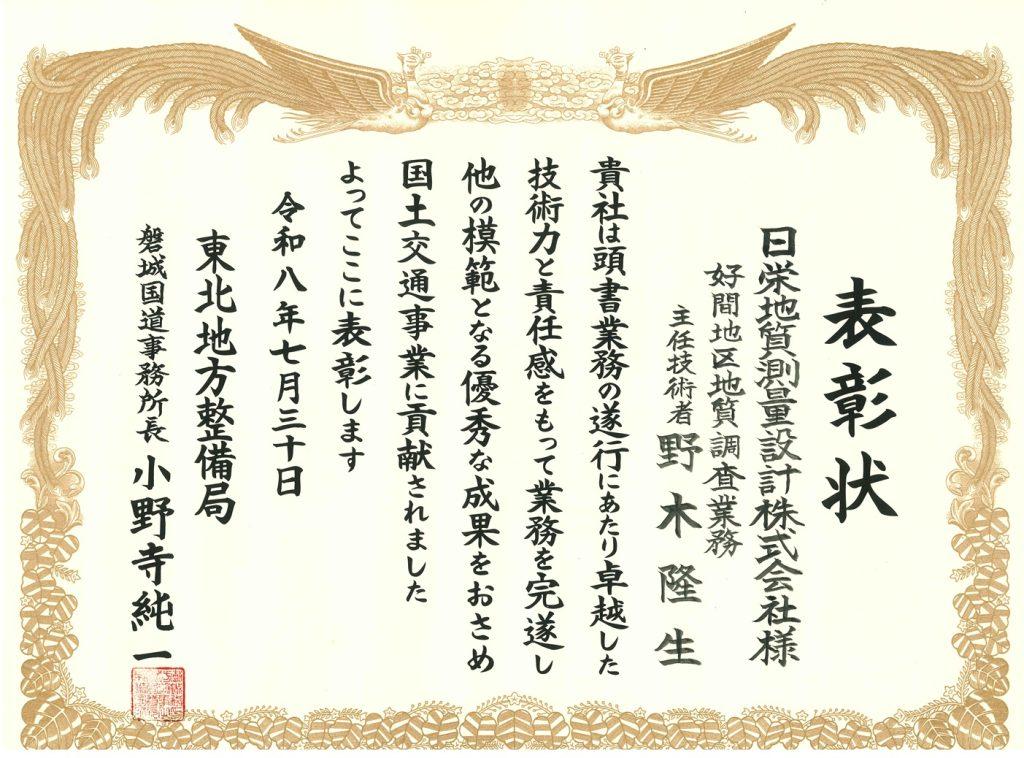 表彰状
日栄地質測量設計株式会社様
好間地区地質調査業務
主任技術者 野木隆生
貴社は頭書業務の遂行にあたり卓越した
技術力と責任感をもって業務を完遂し
他の模範となる優秀な成果をおさめ
国土交通事業に貢献されました
よってここに表彰します
令和八年七月三十日
東北地方整備局
磐城国道事務所長 小野寺純一